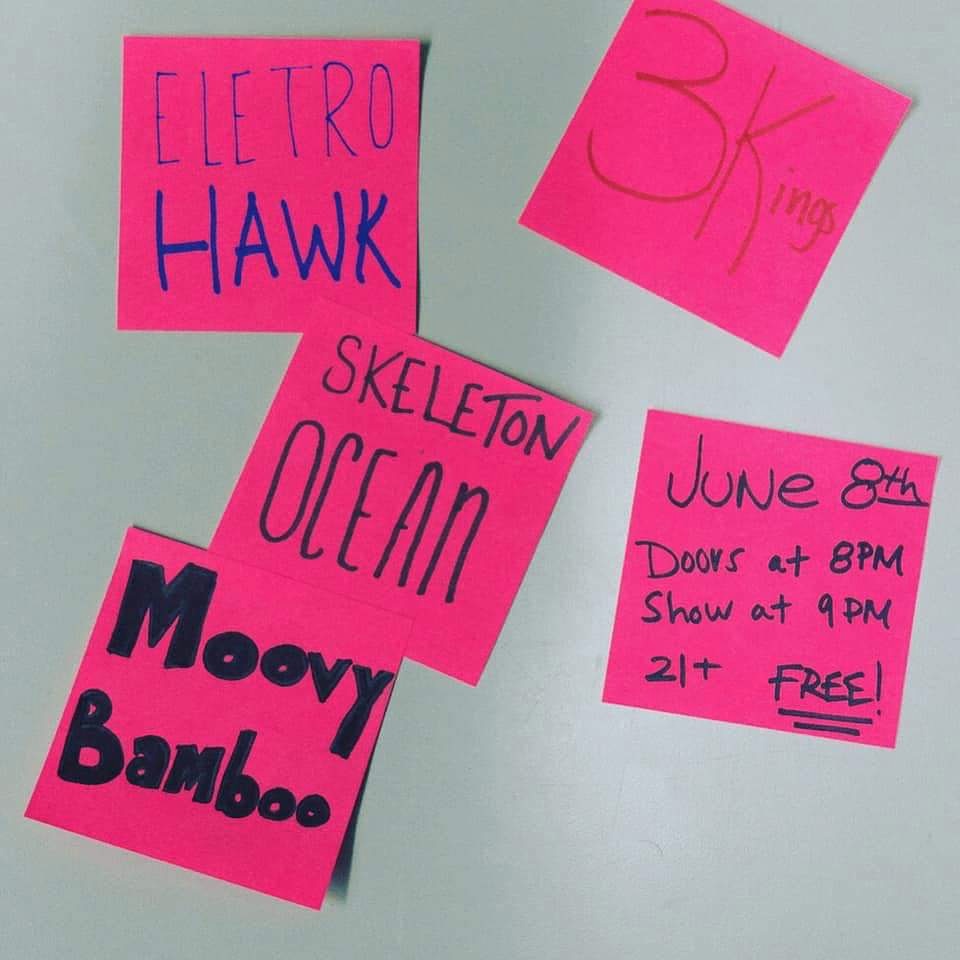 ELETRO
HAWK
3Kings
SKELETON
OCEAN
Moovy
Bamboo
JUNe 8th
Doors at 8PM
Show at 9PM
21+ FREE!